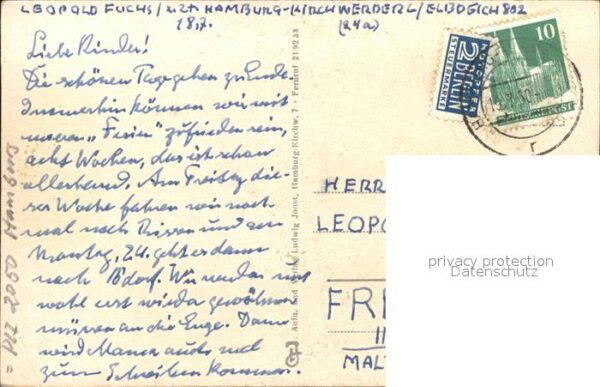 LEOPOLD FUCHS / z.Zt. HAMBURG-KIRCHWERDER 2 / ELBDEICH 802
18.7. (24a)
Liebe Kinder!
Die schönen Tage gehen zu Ende.
Immerhin können wir mit
unseren "Ferien" zufrieden sein,
acht Wochen, das ist schon
allerhand. Am Freitag die-
ser Woche fahren wir noch
mal nach Rissen und am
Montag, 24. geht es dann
nach
Wir werden uns
wohl erst wieder gewöhnen
müssen an die Enge. Dann
wird Mama auch mal
zum Schreiben kommen.
Ludwig Joost, Hamburg-Kirchw. 7 - Fernruf 21 92 33
NOTOPFER
2 BERLIN
STEUERMARKE
10
DEUTSCHE POST
HERR
LEOPO
FRE
MAL
privacy protection
Datenschutz